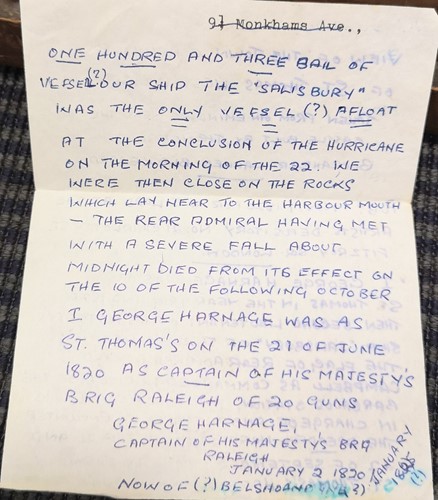 91 Monkhams Ave.,
ONE HUNDRED AND THREE BAIL OF
VEFSEL (?) OUR SHIP THE "SALISBURY"
WAS THE ONLY VEFSEL (?) AFLOAT
AT THE CONCLUSION OF THE HURRICANE
ON THE MORNING OF THE 22. WE
WERE THEN CLOSE ON THE ROCKS
WHICH LAY NEAR TO THE HARBOUR MOUTH
- THE REAR ADMIRAL HAVING MET
WITH A SEVERE FALL ABOUT
MIDNIGHT DIED FROM ITS EFFECT ON
THE 10 OF THE FOLLOWING OCTOBER
I GEORGE HARNAGE WAS AS
ST. THOMAS'S ON THE 21 OF JUNE
1820 AS CAPTAIN OF HIS MAJESTY'S
BRIG RALEIGH OF 20 GUNS
GEORGE HARNAGE,
CAPTAIN OF HIS MAJESTY'S BRG
RALEIGH
JANUARY 2 1820
NOW OF (?) BELSHOAND (?)
JANUARY
(?)